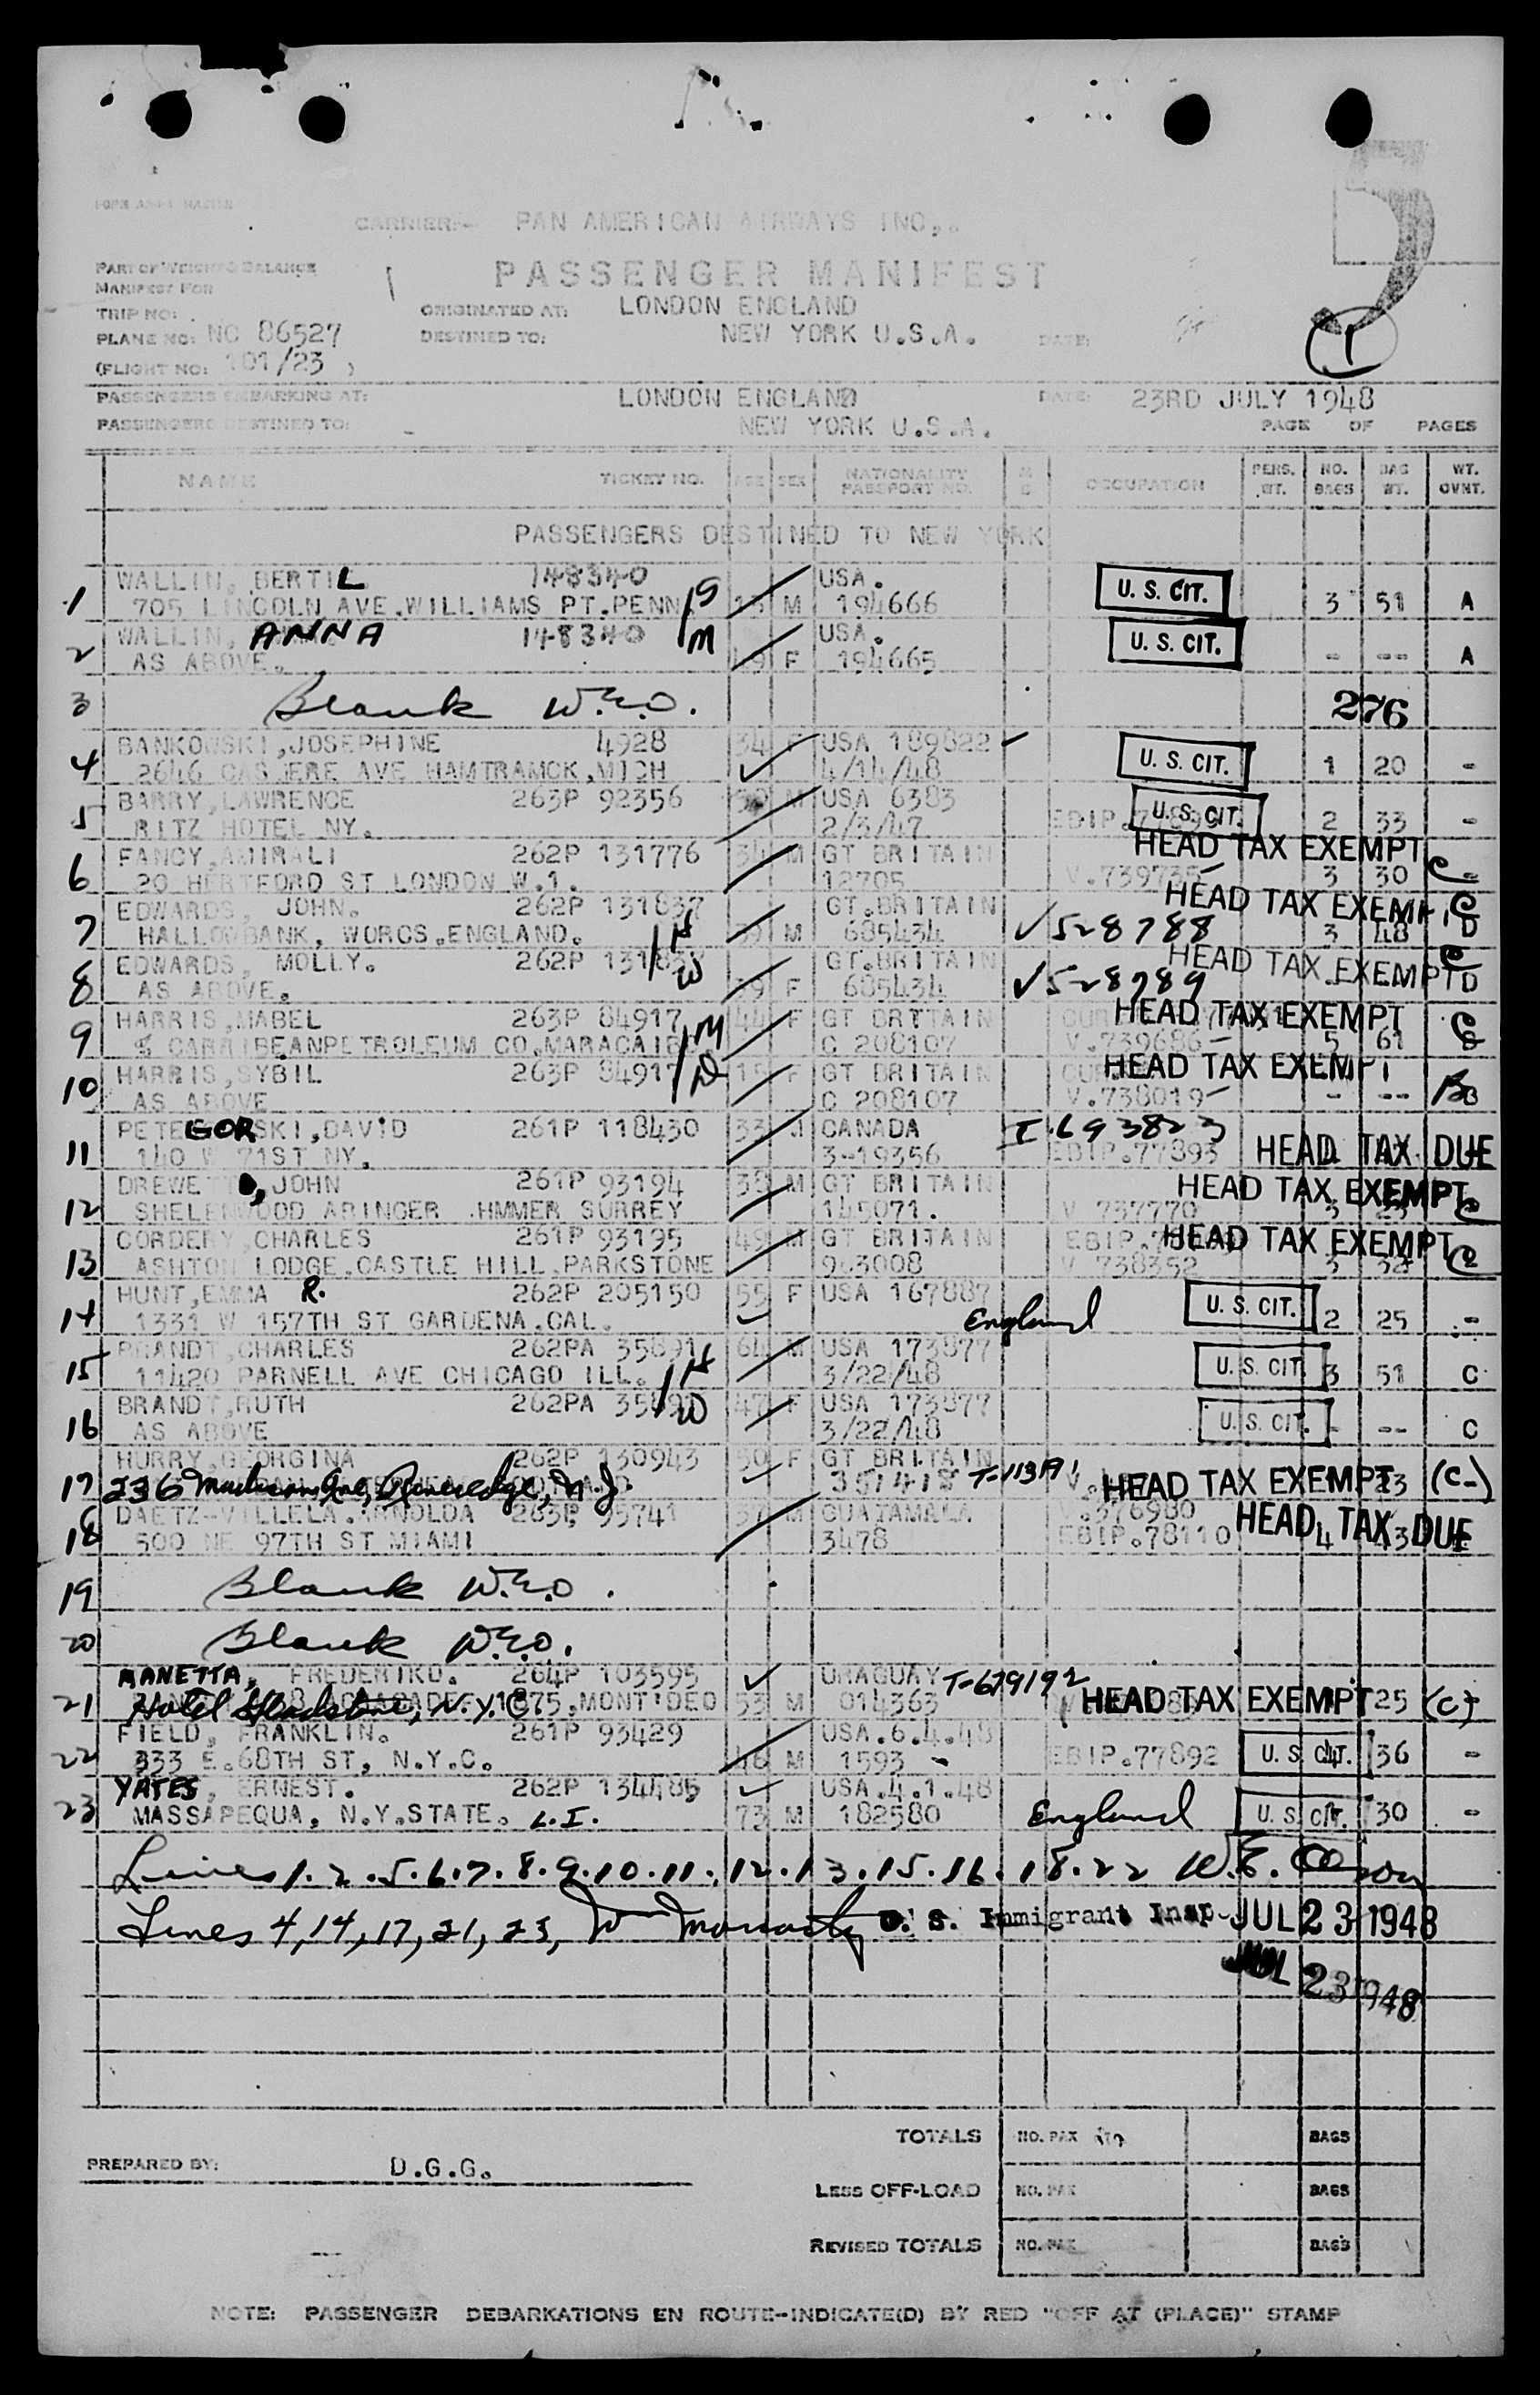 CARRIER:- PAN AMERICAN AIRWAYS INC,.
PART OF WEIGHT & BALANCE
MANIFEST FOR
PASSENGER MANIFEST
TRIP NO:
ORIGINATED AT: LONDON ENGLAND
PLANE NO: NC 86527
DESTINED TO: NEW YORK U.S.A. DATE:
(FLIGHT NO: 101/23 )
1
PASSENGERS EMBARKING AT: LONDON ENGLAND DATE: 23RD JULY 1948
PASSENGERS DESTINED TO: NEW YORK U.S.A. PAGE OF PAGES
NAME TICKET NO. AGE SEX NATIONALITY PASSPORT NO. OCCUPATION PERS. WT. NO. BAGS BAG WT. WT. GVNT.
PASSENGERS DESTINED TO NEW YORK
1 WALLIN, BERTIL 148340 USA. U. S. CIT.
705 LINCOLN AVE.WILLIAMS PT.PENN S M 194666 3 51 A
2 WALLIN, ANNA 148340 M USA. U. S. CIT.
AS ABOVE. 49 F 194665 - -- A
3 Blank W.E.O. 276
4 BANKOWSKI,JOSEPHINE 4928 34 F USA 189822 U. S. CIT.
2646 AVE HAMTRAMCK,MICH 4/14/48 1 20 -
5 BARRY,LAWRENCE 263P 92356 M USA 6383 U. S. CIT.
RITZ HOTEL NY. 2/3/47 2 33 -
HEAD TAX EXEMPT
6 FANCY,AMIRALI 262P 131776 34 M GT BRITAIN
20 HERTFORD ST LONDON W.1. 12705 V.739735 3 30
HEAD TAX EXEMPT
7 EDWARDS, JOHN. 262P 131837 H GT.BRITAIN
HALLOWBANK, WORCS.ENGLAND. 39 M 685434 V528788 3 48 D
HEAD TAX EXEMPT
8 EDWARDS, MOLLY. 262P 131837 W GT.BRITAIN
AS ABOVE. 39 F 685434 V528789 D
HEAD TAX EXEMPT
9 HARRIS,MABEL 263P 84917 M 44 F GT BRITAIN
% CARRIBEANPETROLEUM CO.MARACAIBO C 208107 V.739686- 5 61
HEAD TAX EXEMPT
10 HARRIS,SYBIL 263P 84917 D 15 F GT BRITAIN
AS ABOVE C 208107 V.738019- - -- B
11 PETEGORSKI,DAVID 261P 118430 33 CANADA I.693823
140 W 71ST NY. 3-19356 EBIP.77893 HEAD TAX DUE
12 DREWETT, JOHN 261P 93194 38 M GT BRITAIN HEAD TAX EXEMPT
SHELENWOOD ABINGER HMMER SURREY 145071. V 737770
13 CORDERY,CHARLES 261P 93195 49 M GT BRITAIN HEAD TAX EXEMPT
ASHTON LODGE.CASTLE HILL.PARKSTONE 903008 V 738352
14 HUNT,EMMA R. 262P 205150 55 F USA 167887 U. S. CIT.
1331 W 157TH ST GARDENA.CAL. England 2 25 -
15 BRANDT,CHARLES 262PA 35891 H 64 M USA 173877 U. S. CIT.
11420 PARNELL AVE CHICAGO ILL. 3/22/48 3 51 C
16 BRANDT,RUTH 262PA W 47 F USA 173877 U. S. CIT.
AS ABOVE 3/22/48 - -- C
17 HURRY,GEORGINA 262P 130943 50 F GT BRITAIN
236 Madison Ave, N.J. 351418 HEAD TAX EXEMPT 23 (C-)
18 DAETZ-VILLELA.ARNOLDA 263P 95741 37 M GUATAMALA V.576980
500 NE 97TH ST MIAMI 3478 EBIP.78110 HEAD TAX DUE
19 Blank W.E.O.
20 Blank W.E.O.
21 MANETTA, FREDERIKO. 264P 103595 URAGUAY T-679192
Hotel Gladstone, N.Y.C. 1875,MONT'DEO 53 M 014363 HEAD TAX EXEMPT 25 (C)
22 FIELD, FRANKLIN. 261P 93429 USA.6.4.48
333 E.68TH ST, N.Y.C. 46 M 1593 - EBIP.77892 U. S. CIT. 36 -
23 YATES, ERNEST. 262P 134485 USA.4.1.48
MASSAPEQUA, N.Y.STATE. L.I. 73 M 182580 England U. S. CIT. 30 -
Lines 1.2.5.6.7.8.9.10.11.12.13.15.16.18.22 W.E.
Lines 4,14,17,21,23, U. S. Immigrant Insp. JUL 23 1948
JUL 23 1948
TOTALS NO. PAX BAGS
PREPARED BY: D.G.G.
LESS OFF-LOAD NO. PAX BAGS
REVISED TOTALS NO. PAX BAGS
NOTE: PASSENGER DEBARKATIONS EN ROUTE-INDICATE(D) BY RED "OFF AT (PLACE)" STAMP